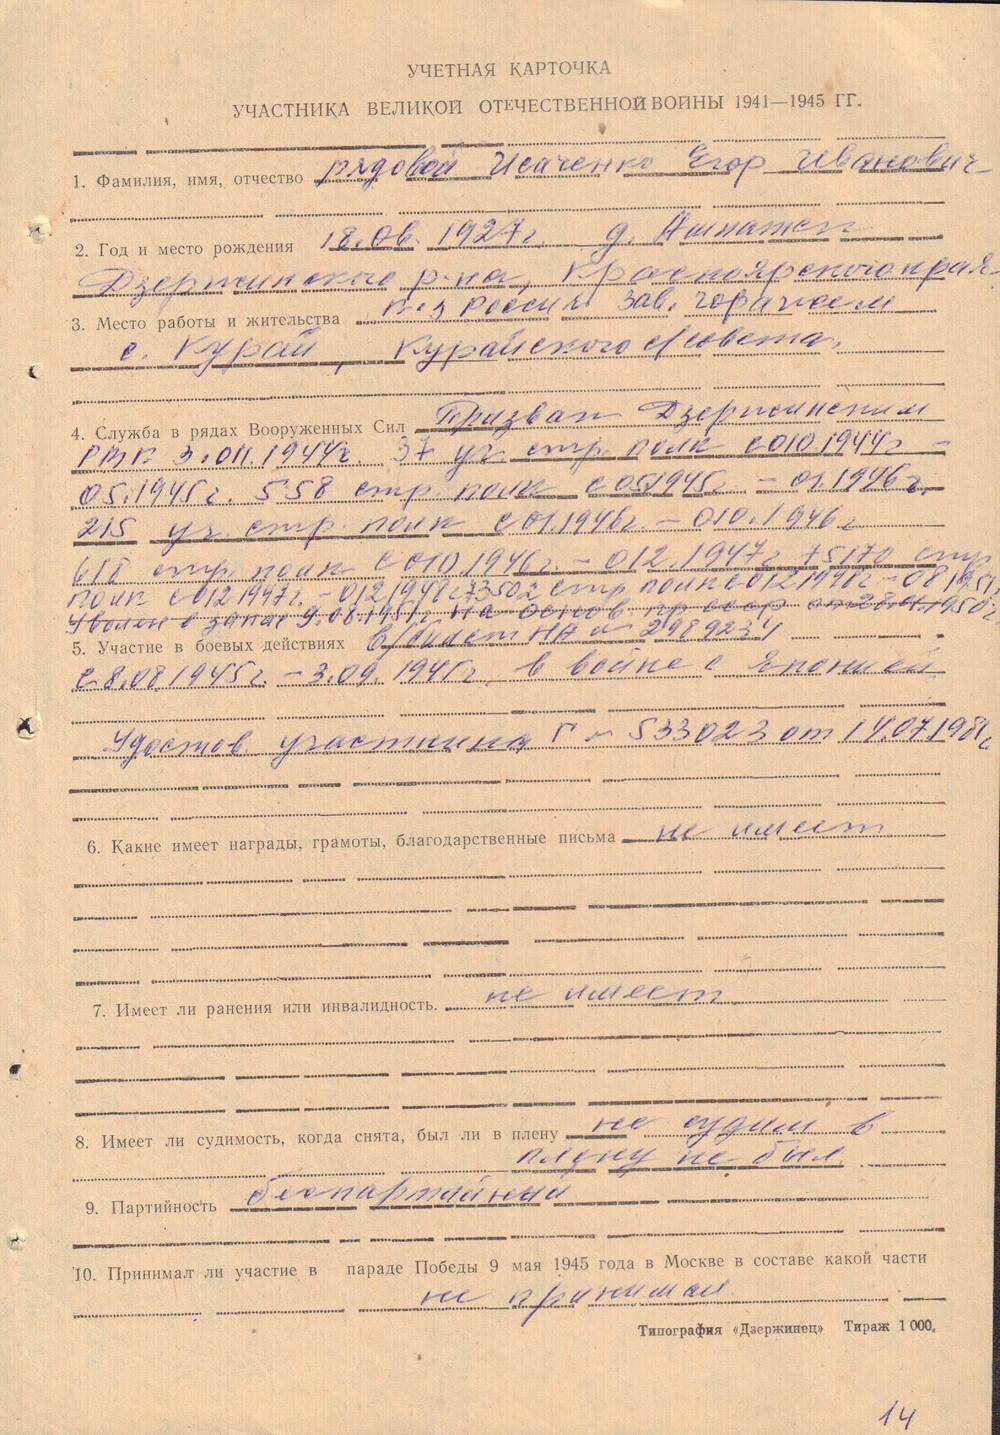 УЧЕТНАЯ КАРТОЧКА
УЧАСТНИКА ВЕЛИКОЙ ОТЕЧЕСТВЕННОЙ ВОЙНЫ 1941—1945 ГГ.
1. Фамилия, имя, отчество рядовой Исаченко Егор Иванович
2. Год и место рождения 18.06.1927г. д. Ашпатск
Дзержинского р-на, Красноярского края
3. Место работы и жительства к-з Россия зав. горючем
с. Курай, Курайского с/совета.
4. Служба в рядах Вооруженных Сил Призван Дзержинским
РВК 3.011.1944г. 37 уч. стр. полк с 010.1944г –
05.1945г. 558 стр. полк с 051945г – 01.1946г.
215 уч. стр. полк с 01.1946г. – 010.1946г
618 стр. полк с 010.1946г. – 012.1947г 75170 стр.
полк с 012 1947г. – 012 1948г 73502 стр. полк с 012 1948г – 08 1951г.
Уволен в запас 9.08.1951г. на основ пр ссср от 28.11.1950г.
5. Участие в боевых действиях в/билет НА № 2989234
с 8.08.1945г. – 3.09.1945г. в войне с Японией
Удостов. участника Г № 533023 от 14.07.1981г
6. Какие имеет награды, грамоты, благодарственные письма не имеет
7. Имеет ли ранения или инвалидность. не имеет
8. Имеет ли судимость, когда снята, был ли в плену не судим в
плену не был
9. Партийность беспартийный
10. Принимал ли участие в параде Победы 9 мая 1945 года в Москве в составе какой части
не принимал
Типография «Дзержинец» Тираж 1 000.
14